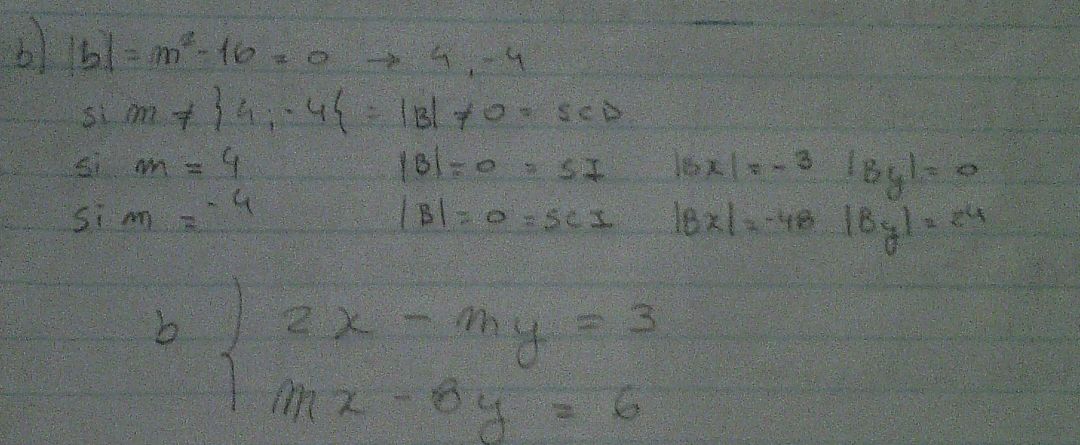 b) |b| = m² - 16 = 0 → 4, -4
si m ≠ }4, -4{ = |B| ≠ 0 = SCD
si m = 4 |B| = 0 = SI |Bx| = -3 |By| = 0
si m = -4 |B| = 0 = SCI |Bx| = -48 |By| = 24
b { 2x - my = 3
mx - 8y = 6